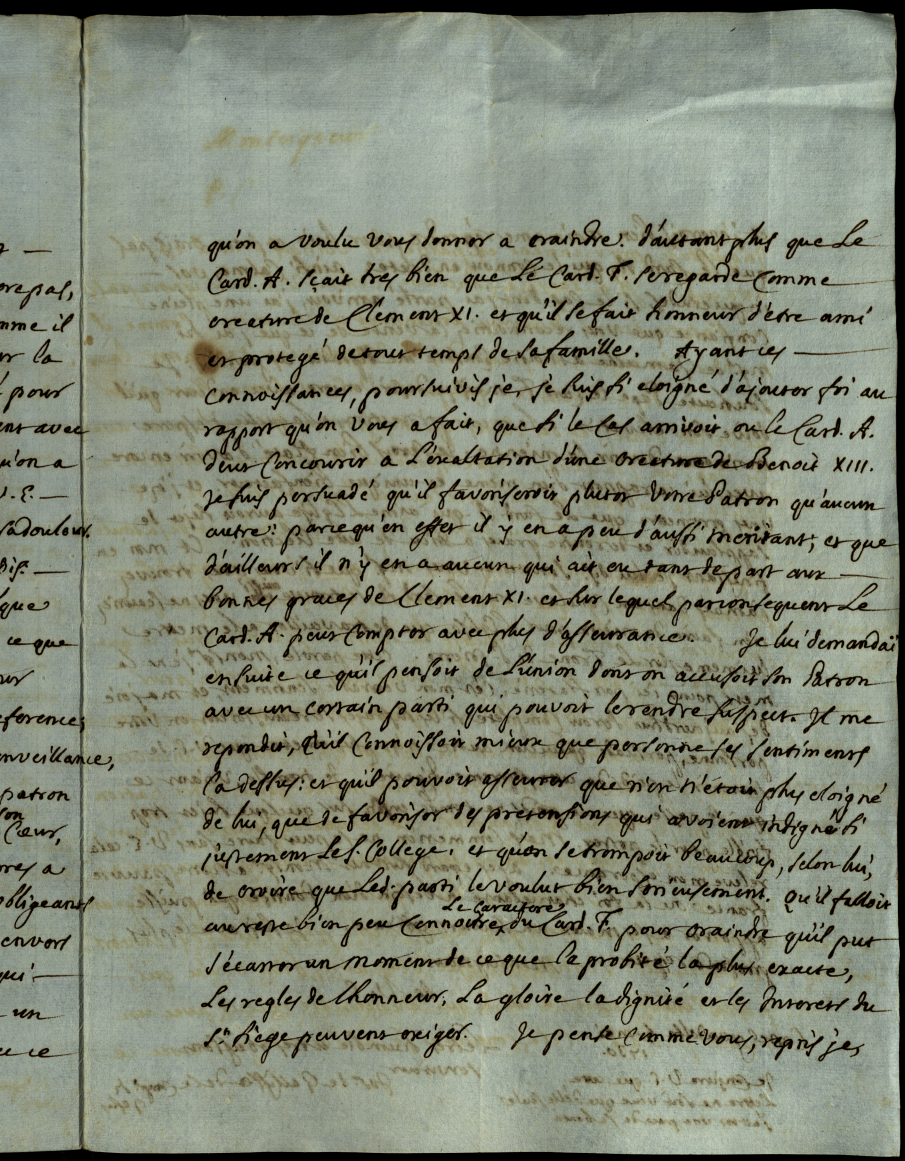 qu'on a voulu vous donner a craindre. d'autant plus que Le
Card. A. sçait tres bien que Le Card. F. se regarde Comme
creature de Clement XI. et qu'il se fait honneur d'être ami
et protegé de tout temps de sa famille. Ayant ces —
connoissances, poursuivis je, je suis si eloigné d'ajouter foi au
rapport qu'on vous a fait, que si le Cas arrivoit ou le Card. A.
deut Concourir a L'exaltation d'une creature de Benoit XIII.
je suis persuadé qu'il favoriseroit plutot votre Patron qu'aucun
autre: parce qu'en effet il y en a peu d'aussi meritant; et que
d'ailleurs il n'y en a aucun qui ait eu tant de part aux —
bonnes graces de Clement XI. et sur lequel par consequent Le
Card. A. peut Compter avec plus d'asseurance. Je lui demandai
ensuite ce qu'il pensoit de L'union dont on accusoit son Patron
avec un certain parti qui pouvoit le rendre suspect. Il me
repondit, qu'il Connoissoit mieux que personne ses sentiments
la dessus: et qu'il pouvoit asseurer que rien n'étoit plus eloigné
de lui, que de favoriser des pretensions qui avoient indigné si
justement Le S. College. et qu'on se trompoit beaucoup, selon lui,
de croire que Led. parti le voulut bien serieusement. Qu'il falloit
Le Caractere
au reste bien peu Connoitre du Card. F. pour craindre qu'il put
s'écarter un moment de ce que la probité la plus exacte,
Les regles de l'honneur, La gloire la dignité et les Interests du
St. Siege peuvent exiger. Je pense Comme vous, repris je,
—
repas,
mme il
ur la
pour
ent avec
qu'on a
V. E. —
sa douleur.
—
que
ce que
eference,
enveillance,
patron
son
Coeur,
res a
obligeants
envers
qui —
un
ce